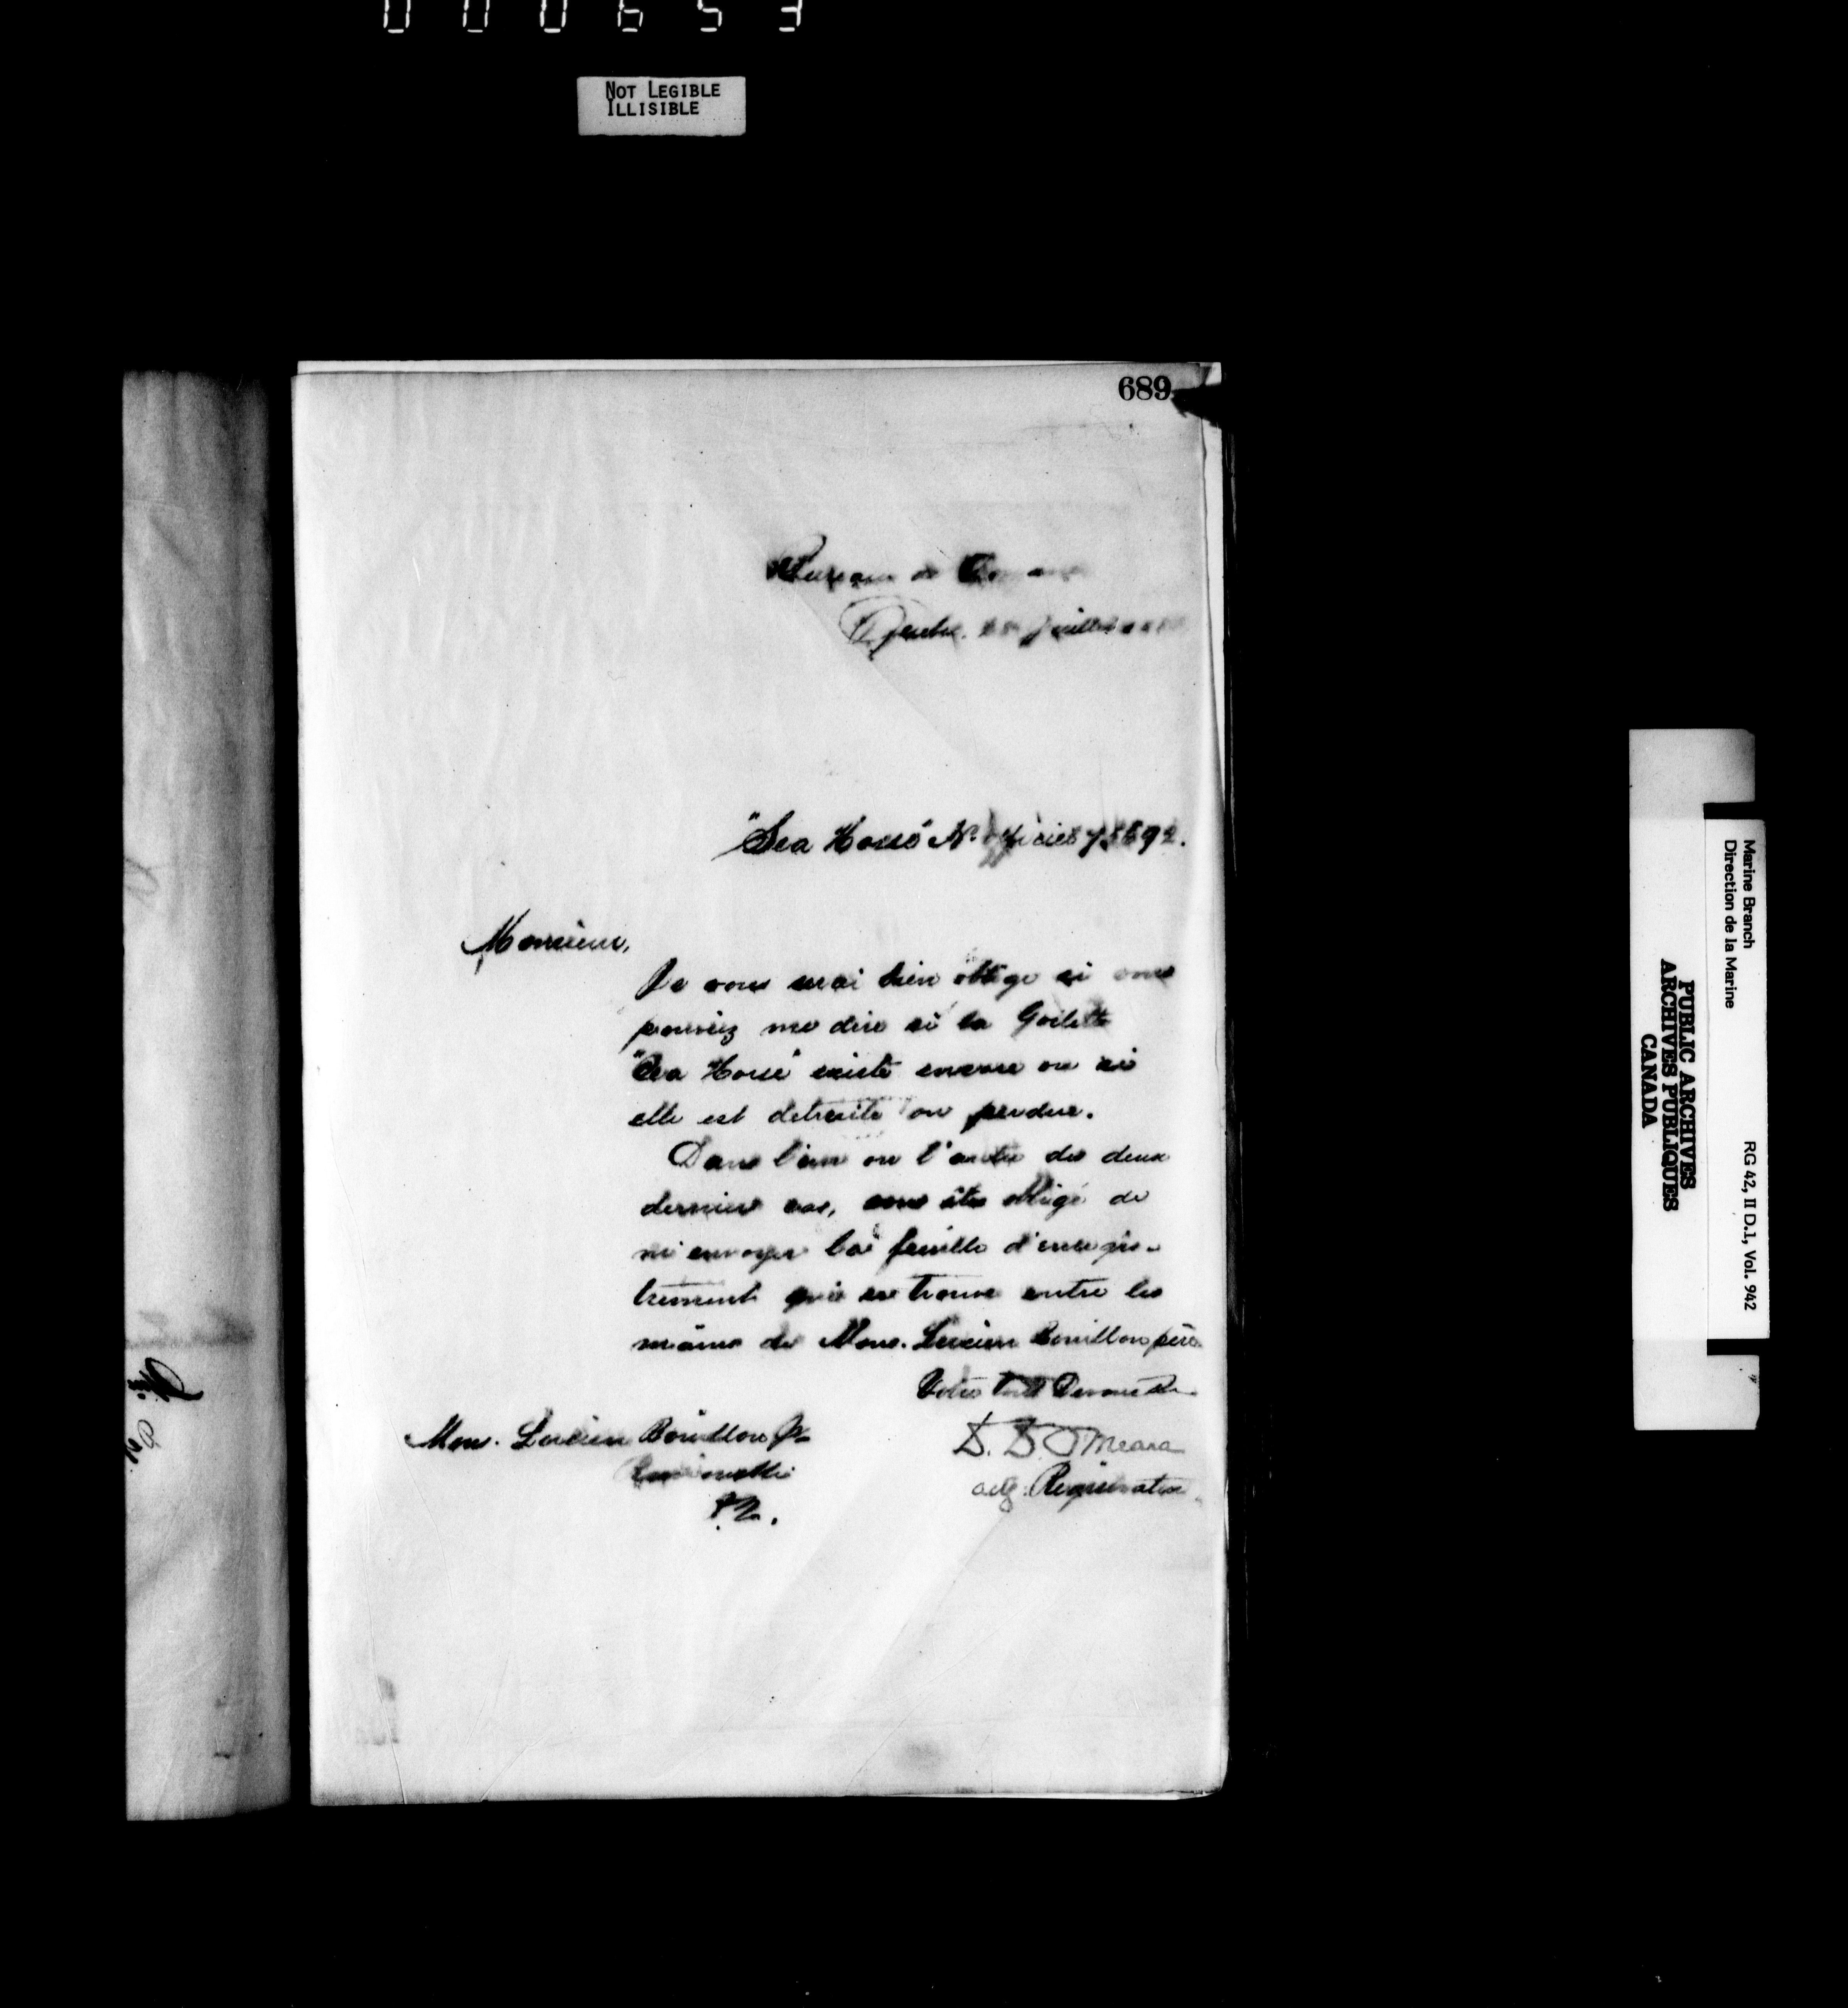 000653
NOT LEGIBLE
ILLISIBLE
689
Bureau de
Quebec. Juillet
"Sea Horse" No. Officiel 75692.
Monsieur,
Je vous serai bien obligé si vous
pouviez me dire si la Goilette
"Sea Horse" existe encore ou si
elle est detruite ou perdue.
Dans l'un ou l'autre des deux
derniers cas, vous êtes obligé de
m'envoyer la feuille d'enregis-
trement qui se trouve entre les
mains de Mons. Lucien Bouillon père
Votre tout Devoue Sr.
Mons. Lucien Bouillon Jr
D. D. O'Meara
actg. Registrateur
P.Q.
Marine Branch
Direction de la Marine
RG 42, II D.1, Vol. 942
PUBLIC ARCHIVES
ARCHIVES PUBLIQUES
CANADA